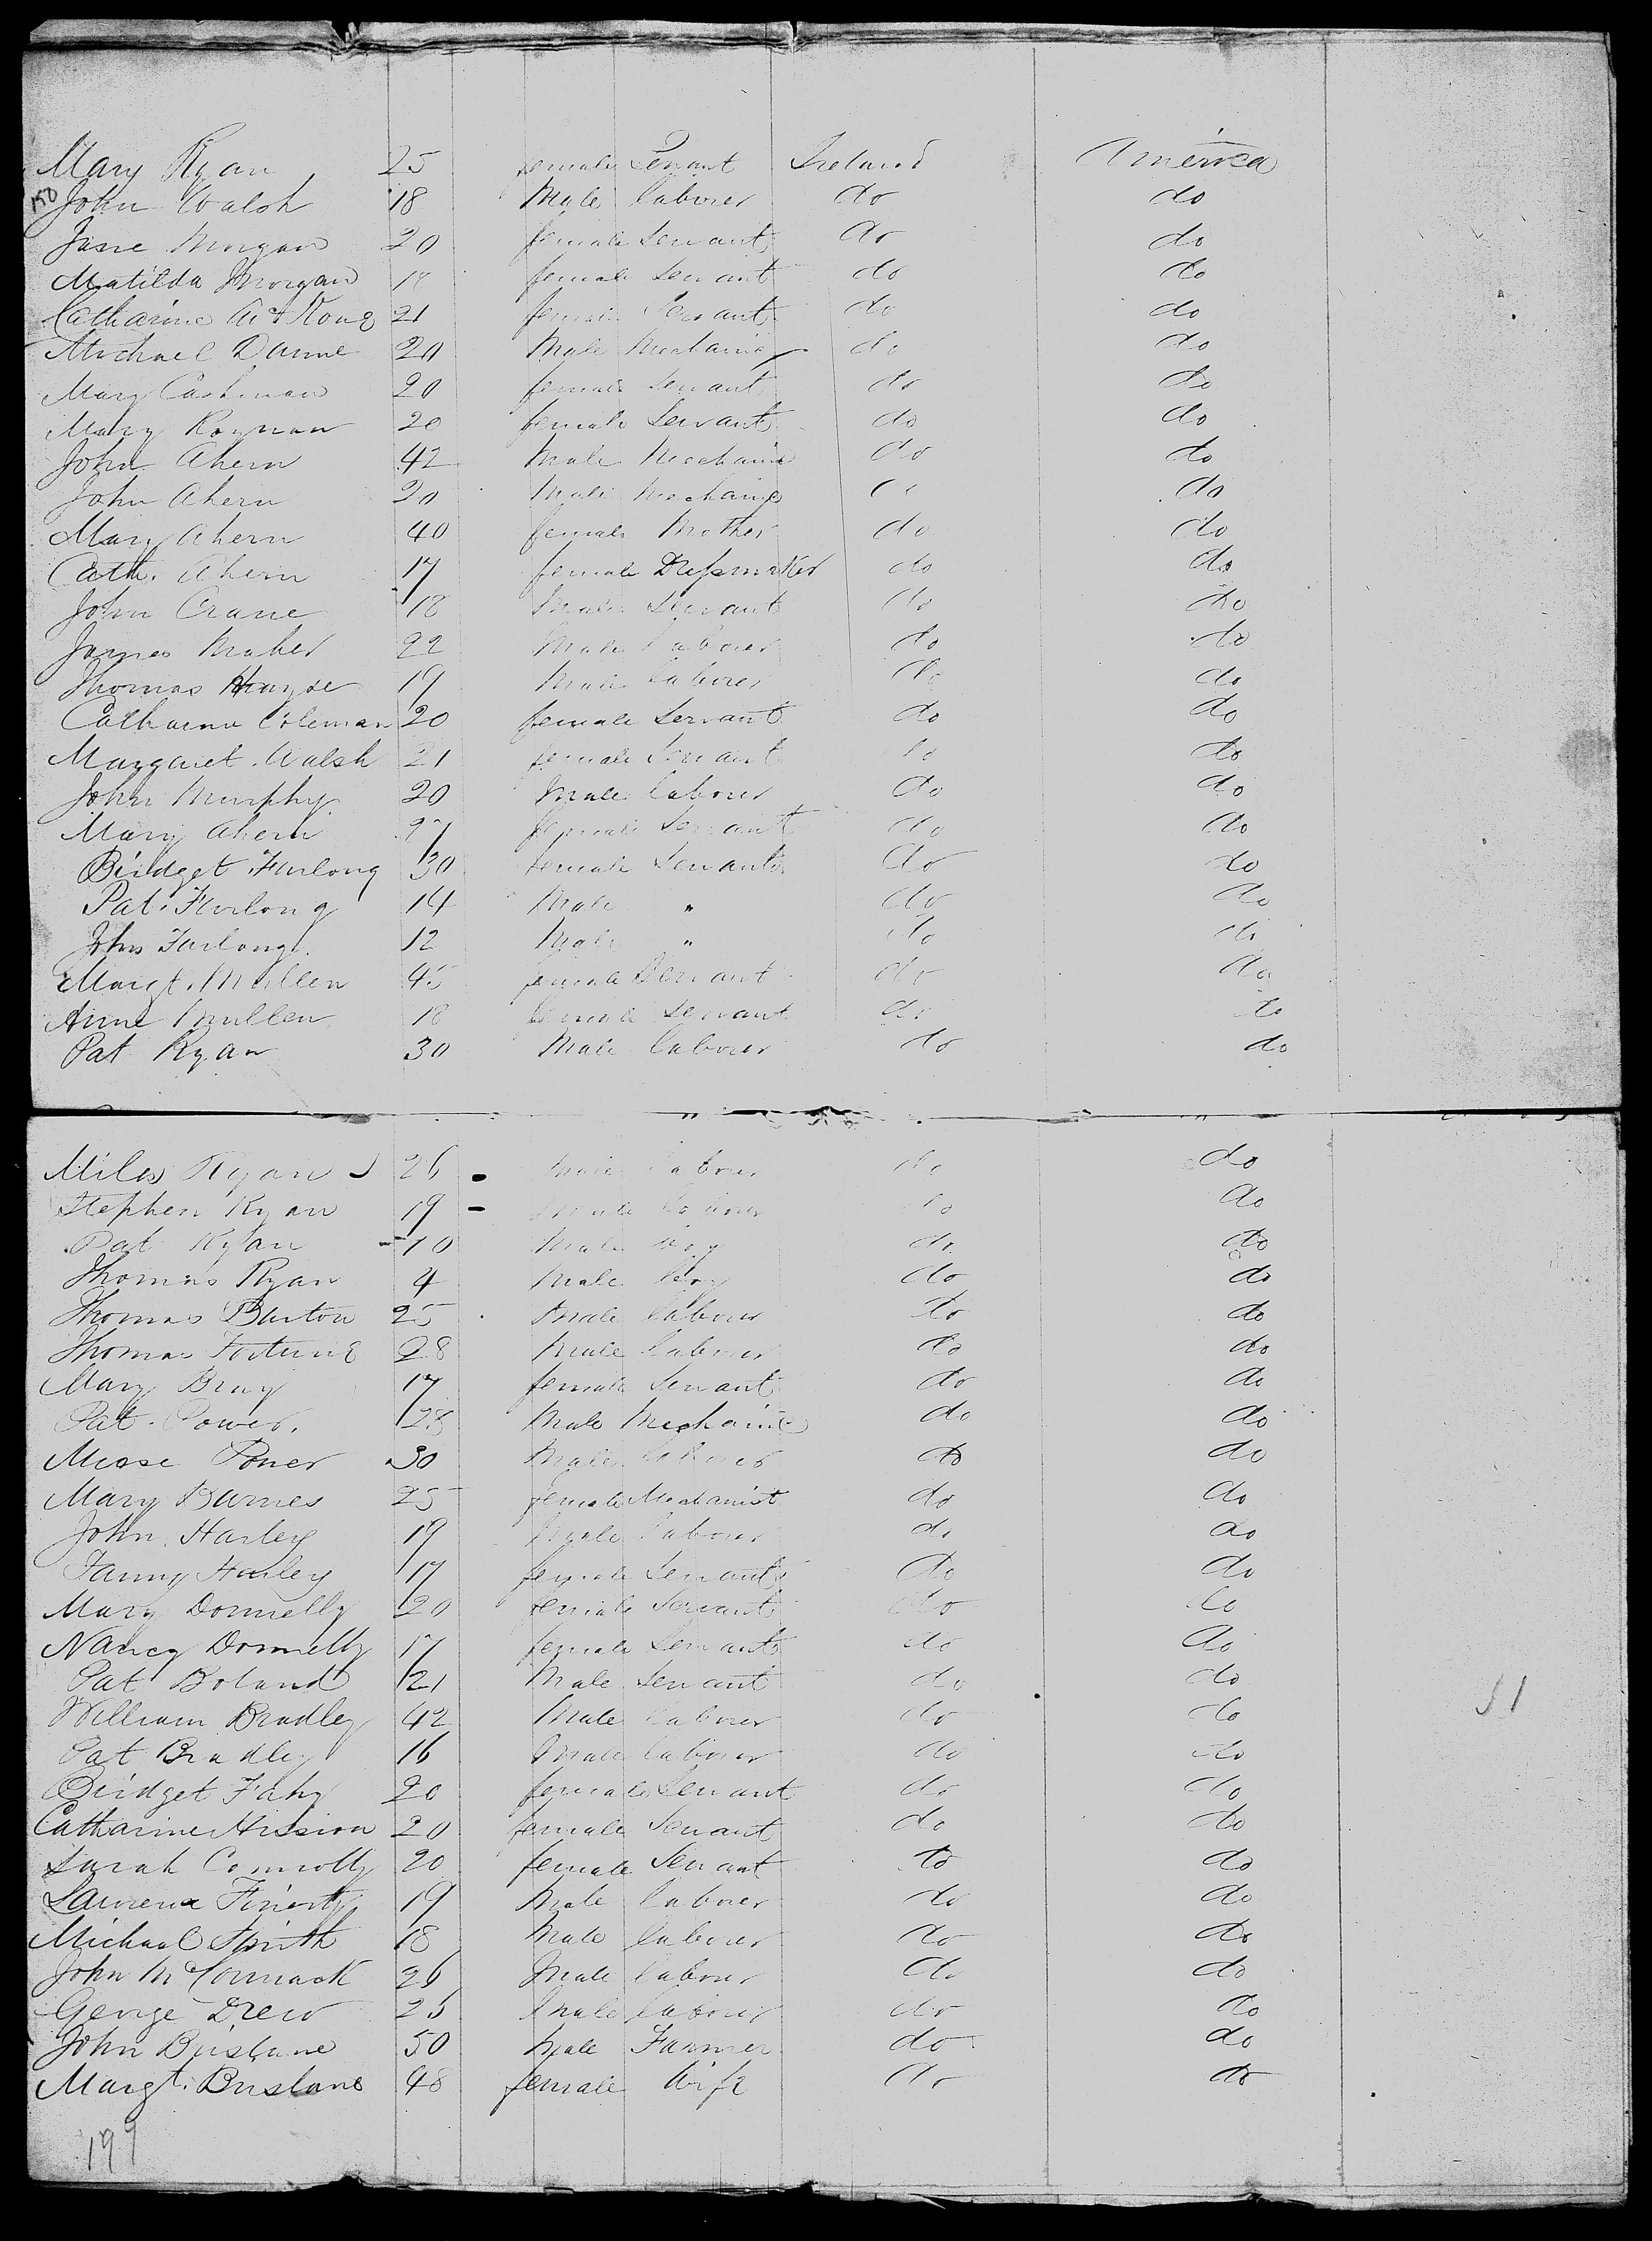 Mary Ryan 25 female Servant Ireland America
150 John Walsh 18 Male laborer do do
Jane Morgan 20 female Servant do do
Matilda Morgan 18 female Servant do do
Catharine 21 female Servant do do
Michael Dunne 20 Male Mechanic do do
Mary Cashman 20 female Servant do do
Mary 20 female Servant do do
John Ahern 42 Male Mechanic do do
John Ahern 20 Male Mechanic do do
Mary Ahern 40 female Mother do do
Cath. Ahern 17 female Dressmaker do do
John Crane 18 Male Servant do do
James Maher 22 Male laborer do do
Thomas 19 Male laborer do do
Catharine Coleman 20 female Servant do do
Margaret Walsh 21 female Servant do do
John Murphy 20 Male laborer do do
Mary Ahern 27 female Servant do do
Bridget Furlong 30 female Servant do do
Pat. Furlong 14 Male " do do
John Furlong 12 Male " do do
Margt. Mullen 45 female Servant do do
Anne Mullen 18 female Servant do do
Pat Ryan 30 Male laborer do do
Miles Ryan 26 Male laborer do do
Stephen Ryan 19 Male laborer do do
Pat Ryan 10 Male boy do do
Thomas Ryan 4 Male boy do do
Thomas Burton 25 Male laborer do do
Thomas Fortune 28 Male laborer do do
Mary Bray 17 female Servant do do
Pat. Power. 28 Male Mechanic do do
Power 30 Male laborer do do
Mary Barnes 25 female Mechanist do do
John Harley 19 Male laborer do do
Fanny Harley 17 female Servant do do
Mary Donnelly 20 female Servant do do
Nancy Donnelly 17 female Servant do do
Pat Boland 21 Male Servant do do
William Bradley 42 Male laborer do do 51
Pat Bradley 16 Male laborer do do
Bridget Fahy 20 female Servant do do
Catharine Hission 20 female Servant do do
Sarah Connolly 20 female Servant do do
Laurence Finerty 19 Male laborer do do
Michael Smith 18 Male laborer do do
John McCormack 26 Male laborer do do
George Drew 25 Male laborer do do
John Brislane 50 Male Farmer do do
Margt. Brislane 48 female Wife do do
199